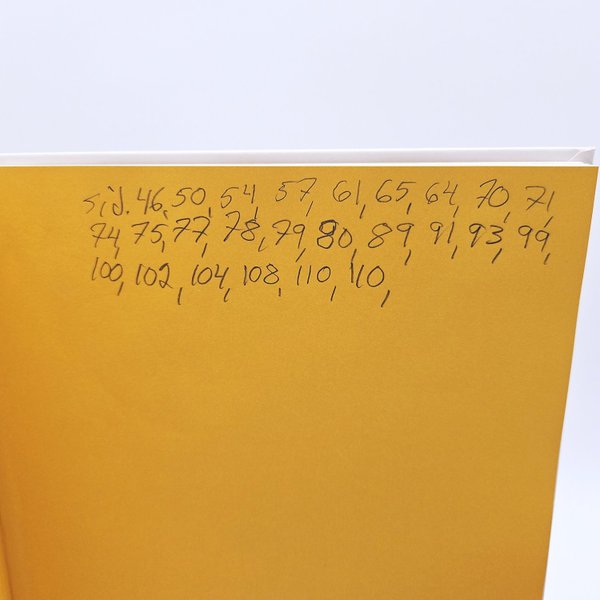 sid. 46, 50, 54, 57, 61, 65, 64, 70, 71,
74, 75, 77, 78, 79, 80, 89, 91, 93, 99,
100, 102, 104, 108, 110, 110,